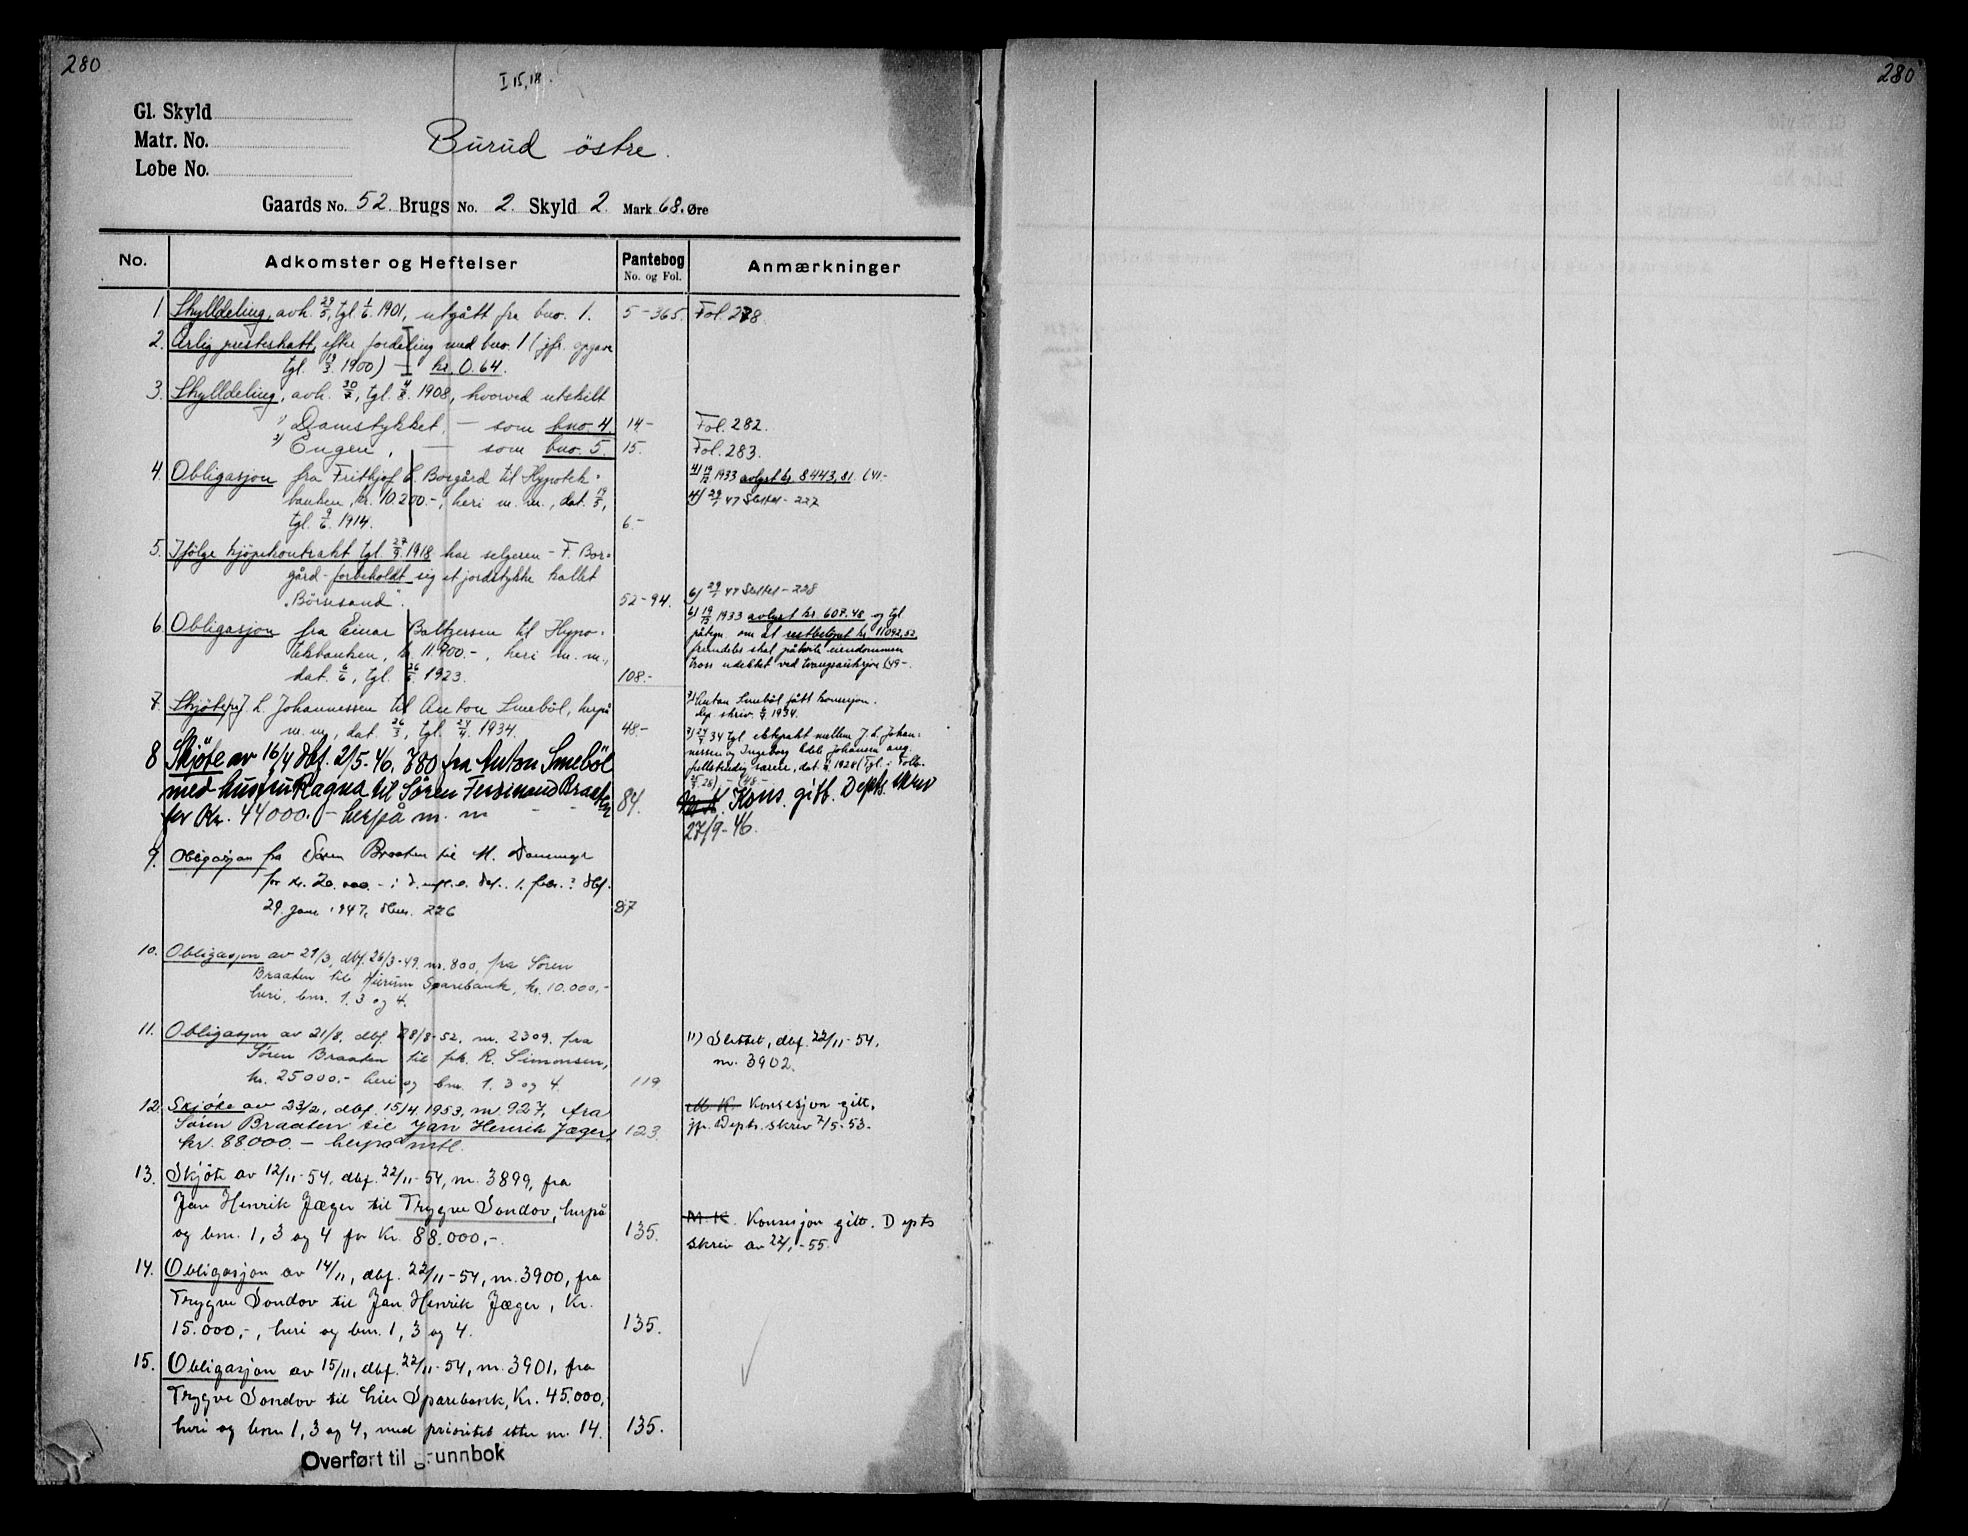 280
I 15, 18.
280
Gl. Skyld
Matr. No.
Løbe No.
Burud östre.
Gaards No. 52. Brugs No. 2. Skyld 2 Mark 68. Øre
No. Adkomster og Heftelser Pantebog No. og Fol. Anmærkninger
1. Skylldeling, avh. 29/5, tgl. 1/6 1901, utgått fra bno. 1. 5-365. Fol. 278.
2. Årlig presteskatt, efter fordeling med bno. 1 (jfr. opgave
tgl. 1900) — kr. 0.64.
3. Skylldeling, avh. 30/7, tgl. 4/8 1908, hvorved utskilt
1) Damstykket, — som bno. 4 14- Fol. 282.
2) Engen, — som bno. 5. 15. Fol. 283.
4. Obligasjon fra Frithjof E. Borgård til Hypotek- 4) 1933 avlyst kr. 8443,81. (41-
banken, kr. 10200.-, heri m. m., dat. 19/5, 4) 29/1 47 Slettet - 227
tgl. 9/6. 1914. 6.-
5. Ifølge kjøpekontrakt tgl. 27/9. 1918 har selgeren - F. Bor-
gård - forbeholdt sig et jordstykke kallet
"Börsesand". 52-94. 6) 29/1 47 Slettet - 228
6. Obligasjon fra Einar Baltzersen til Hypo- 6) 1933 avlyst kr. 607.48 og tgl.
tekbanken, kr. 11.700.-, heri m. m., påtegn. om at restbeløpet kr. 11092,52
dat. 6/6, tgl. 26/6. 1923. 108.- fremdeles skal påhvile eiendommen
tross udekket ved tvangsauksjon (49-.
7. Skjøte fra J. L. Johannessen til Anton Smeböl, herpå 7) Anton Smeböl fått konsesjon.
m. m., dat. 26/3, tgl. 24/4. 1934. 48- Dep. skriv. 1934.
7) 24/4 34 tgl. ektepakt mellem J. L. Johan-
nessen og Ingeborg Edele Johansen ang.
fullstendig særeie, dat. 1928 (Tgl. i
8 Skjøte av 16/4 dbf. 2/5-46, 780 fra Anton Smeböl
med hustru Ragna til Sören Ferdinand Braaten 84. M.K. Kons. gitt. Depts. skriv
for Kr. 44000.- herpå m. m 27/9-46.
9. Obligasjon fra Sören Braaten til M.
for kr. 20.000.- dbf.
29. jan. 1947, 226 87
10. Obligasjon av 21/3, dbf. 26/3-49. nr. 800, fra Sören
Braaten til Hurum Sparebank, kr. 10.000,-
heri, bnr. 1. 3 og 4.
11. Obligasjon av 21/8, dbf. 28/8-52, nr. 2309. fra 11) Slettet, dbf. 22/11-54,
Sören Braaten til frk. R. Simonsen, nr. 3902.
kr. 25000.- heri og bnr. 1. 3 og 4. 119
12. Skjøte av 23/2, dbf. 15/4. 1953, nr. 927, fra M.K. Konsesjon gitt,
Sören Braaten til Jan Henrik Jæger, 123. jfr. Depts. skriv 7/5-53.
kr. 88.000.- herpå mfl.
13. Skjøte av 12/11-54, dbf. 22/11-54, nr. 3899, fra
Jan Henrik Jæger til Trygve Sondov, herpå M.K. Konsesjon gitt. Depts
og bnr. 1, 3 og 4 for Kr. 88.000,-. 135. skriv av 22/1-55.
14. Obligasjon av 14/11, dbf. 22/11-54, nr. 3900, fra
Trygve Sondov til Jan Henrik Jæger, Kr.
15.000,-, heri og bnr. 1, 3 og 4. 135.
15. Obligasjon av 15/11, dbf. 22/11-54, nr. 3901, fra
Trygve Sondov til Lier Sparebank, Kr. 45.000,
heri og bnr 1, 3 og 4, med prioritet etter nr. 14. 135.
Overført til grunnbok